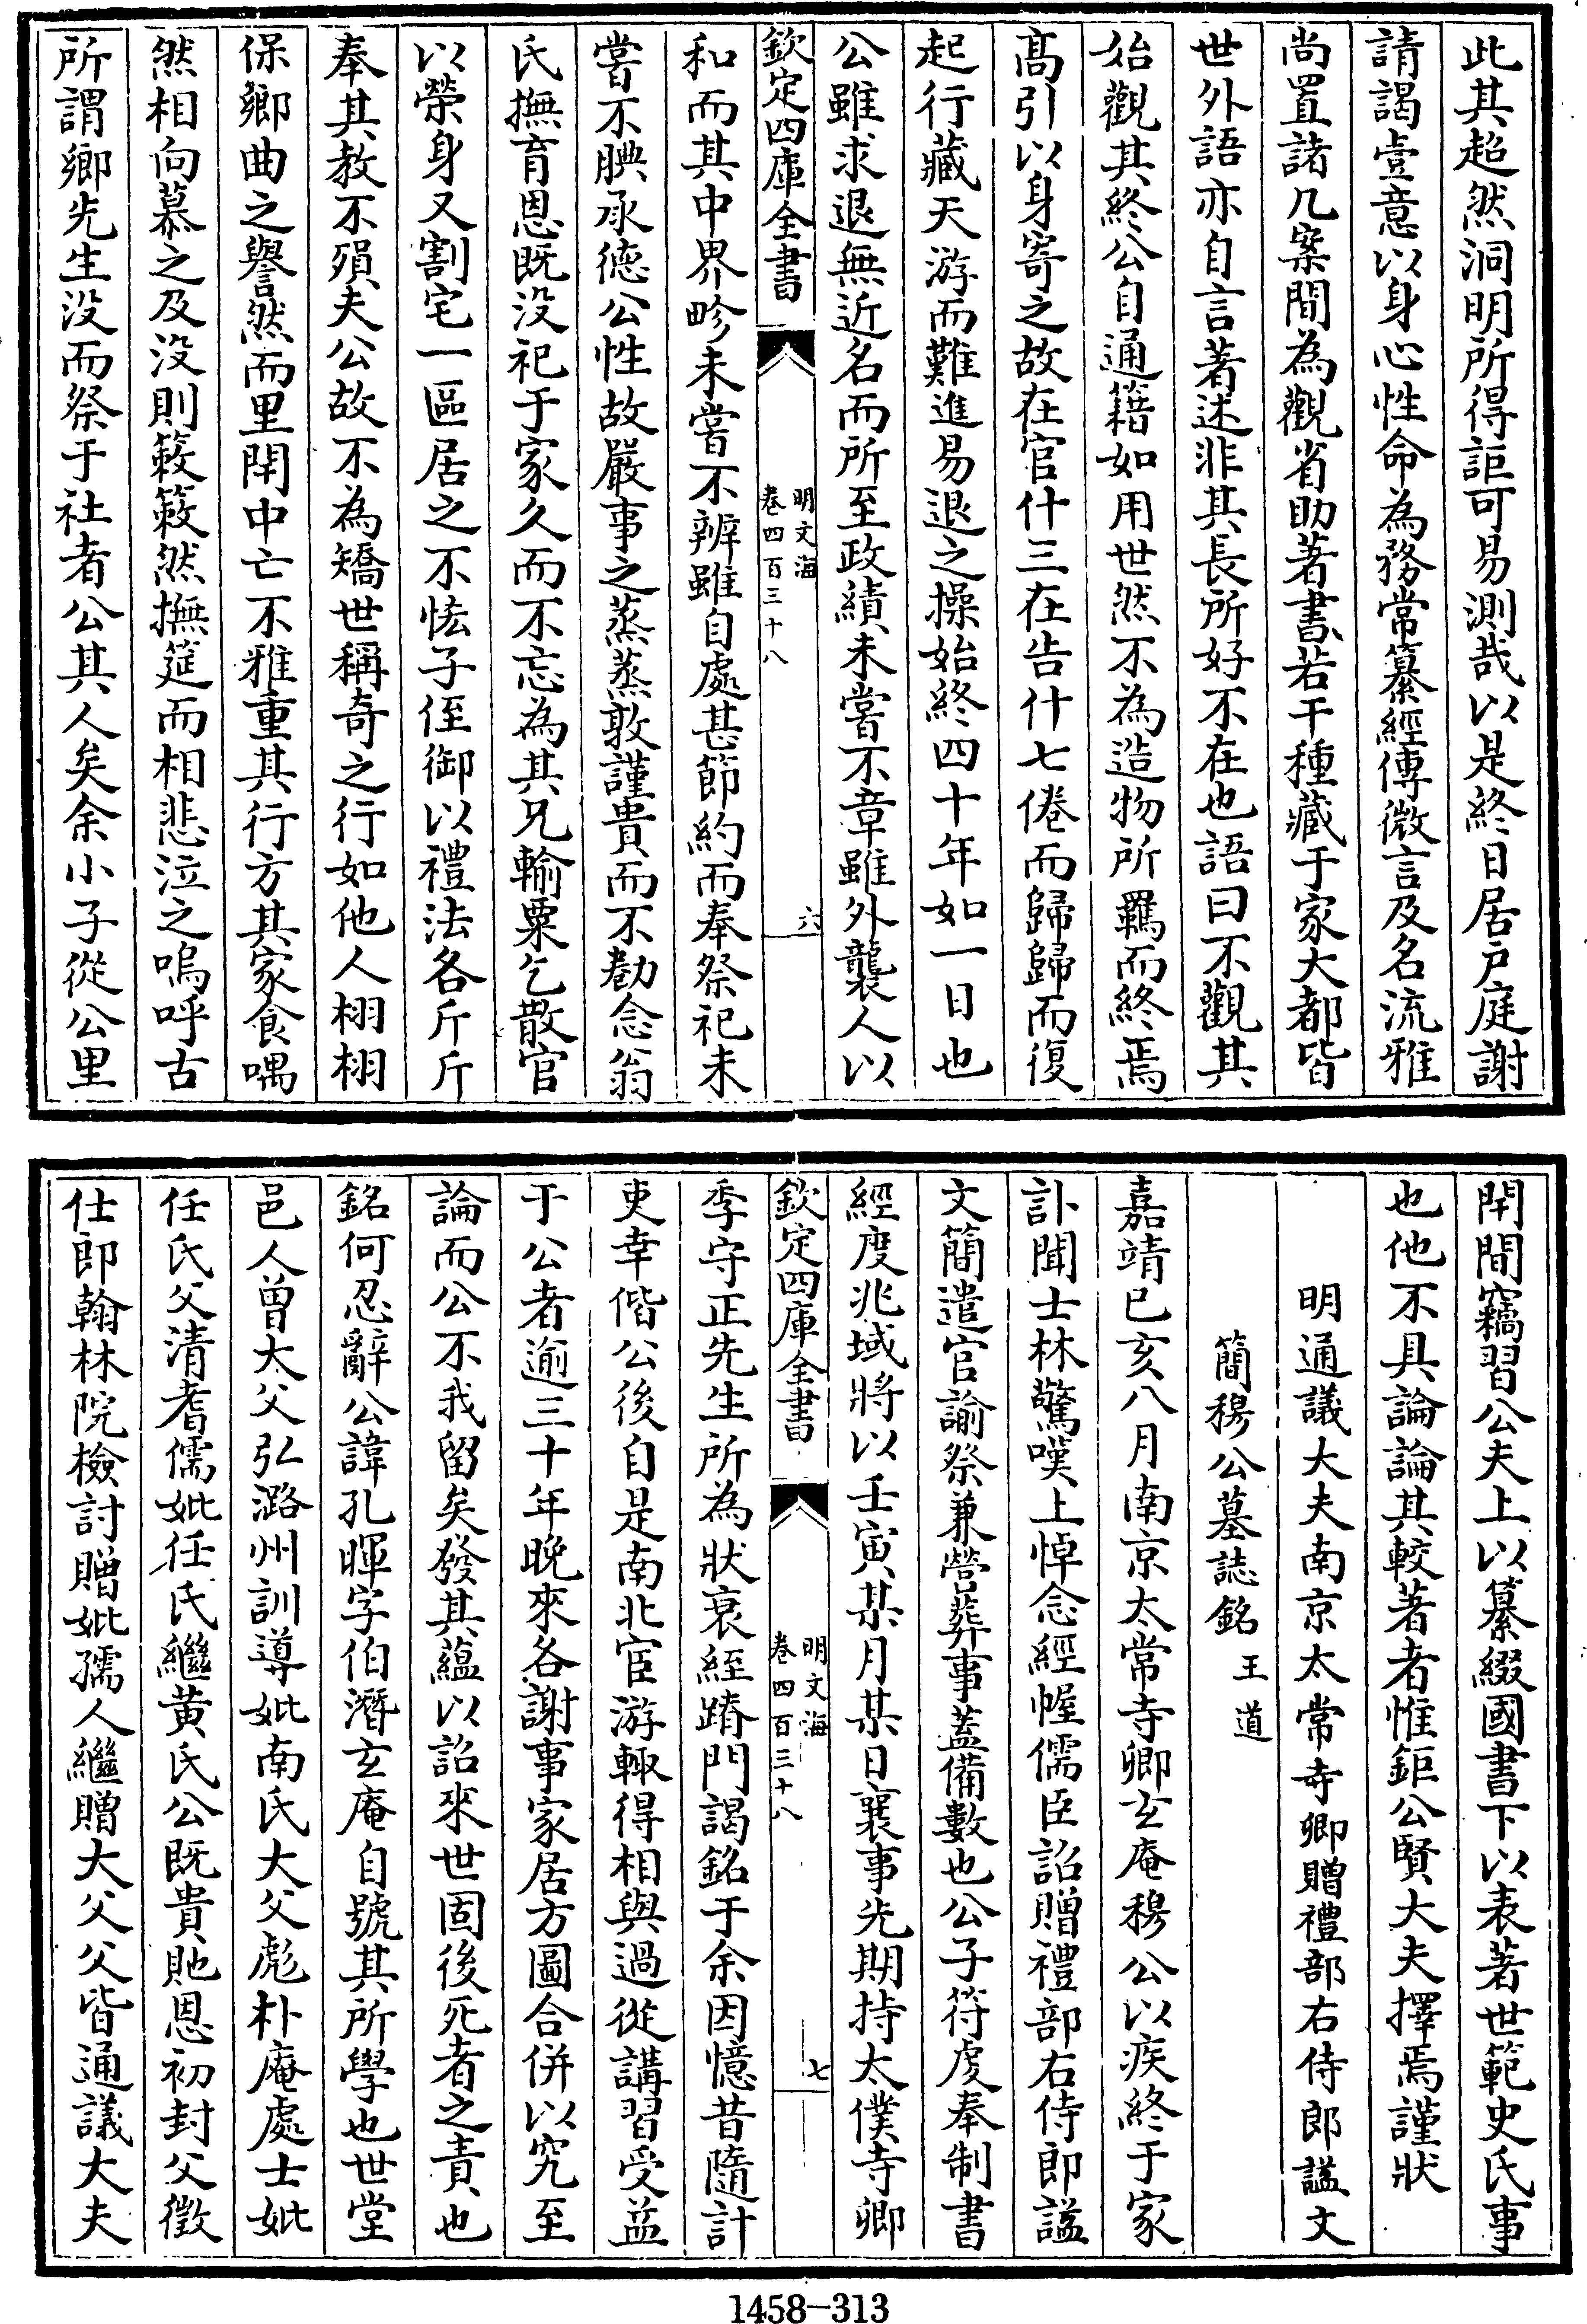 此其超然洞明所得詎可易測哉以是終日居户庭謝
請謁壹意以身心性命為務常纂經傳微言及名流雅
尚置諸几案間為觀省助著書若干種藏于家大都皆
世外語亦自言著述非其長所好不在也語曰不觀其
始觀其終公自通籍如用世然不為造物所羈而終焉
髙引以身寄之故在官什三在告什七倦而歸歸而復
起行藏天游而難進易退之操始終四十年如一日也
公雖求退無近名而所至政績未嘗不章雖外襲人以
欽定四庫全書
明文海
卷四百三十八
六
和而其中界畛未嘗不辨雖自處甚節約而奉祭祀未
嘗不腆承徳公性故嚴事之蒸蒸敦謹貴而不勌念翁
氏撫育恩既没祀于家久而不忘為其兄輸粟乞散官
以榮身又割宅一區居之不恡子侄御以禮法各斤斤
奉其教不殞夫公故不為矯世稱奇之行如他人栩栩
保鄉曲之譽然而里閈中亡不雅重其行方其家食喁
然相向慕之及没則簌簌然撫筵而相悲泣之嗚呼古
所謂鄉先生没而祭于社者公其人矣余小子從公里
閈間竊習公夫上以纂綴國書下以表著世範史氏事
也他不具論論其較著者惟鉅公賢大夫擇焉謹狀
明通議大夫南京太常寺卿贈禮部右侍郎諡文
簡穆公墓誌銘　王道
嘉靖已亥八月南京太常寺卿玄庵穆公以疾終于家
訃聞士林驚嘆上悼念經幄儒臣詔贈禮部右侍郎諡
文簡遣官諭祭兼營葬事蓋備數也公子符䖍奉制書
經度兆域將以壬寅某月某日襄事先期持太僕寺卿
欽定四庫全書
明文海
卷四百三十八
七
季守正先生所為狀衰絰踏門謁銘于余因憶昔隨計
吏幸偕公後自是南北宦游輙得相與過從講習受益
于公者逾三十年晩來各謝事家居方圖合併以究至
論而公不我留矣發其藴以詔來世固後死者之責也
銘何忍辭公諱孔暉字伯潛玄庵自號其所學也世堂
邑人曽大父弘潞州訓導妣南氏大父彪朴庵處士妣
任氏父清耆儒妣任氏繼黄氏公既貴貤恩初封父徵
仕郎翰林院檢討贈妣孺人繼贈大父父皆通議大夫
1458—313